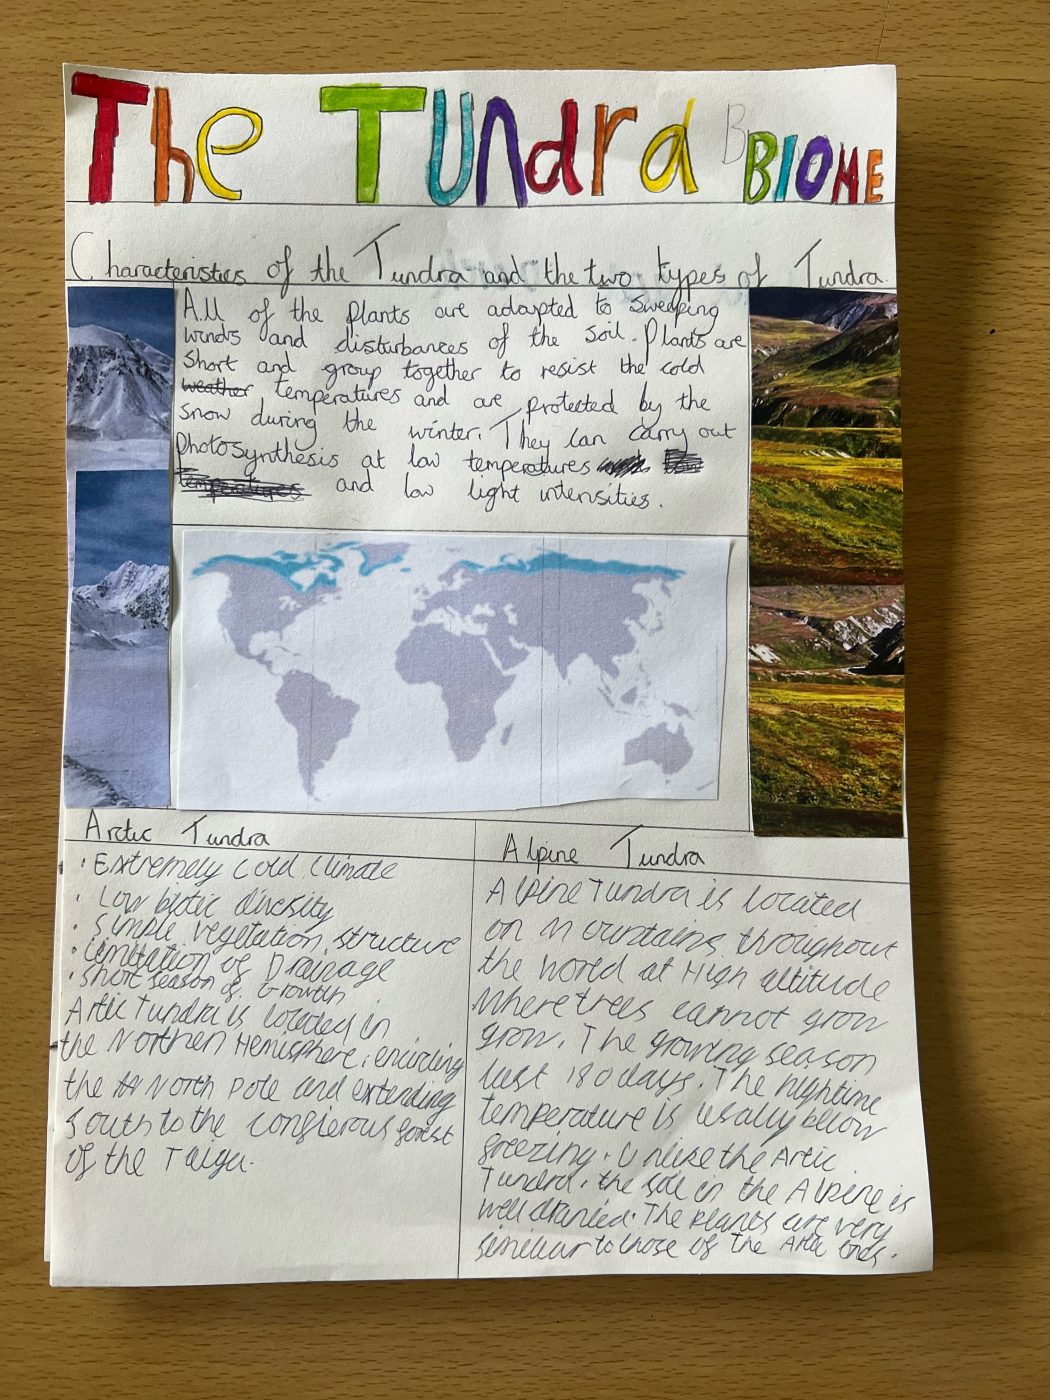 The Tundra BIOME
Characteristics of the Tundra and the two types of Tundra.
All of the plants are adapted to sweeping
winds and disturbances of the soil. Plants are
short and group together to resist the cold
weather temperatures and are protected by the
snow during the winter. They can carry out
photosynthesis at low temperatures
temperatures and low light intensities.
Arctic Tundra
· Extremely cold climate
· Low biotic diversity
· Simple vegetation structure
· Limitation of Drainage
· Short season of Growth
Artic Tundra is located in
the Northen Hemisphere, encircling
the North Pole and extending
South to the conifierous forest
of the Taiga.
Alpine Tundra
Alpine Tundra is located
on Mountains throughout
the world at High altitude
Where trees cannot grow
grow. The growing season
last 180 days. The nightime
temperature is usally below
freezing. Unlike the Artic
Tundra, the soil in the Alpine is
well drained. The plants are very
similiar to those of the Artic ones.